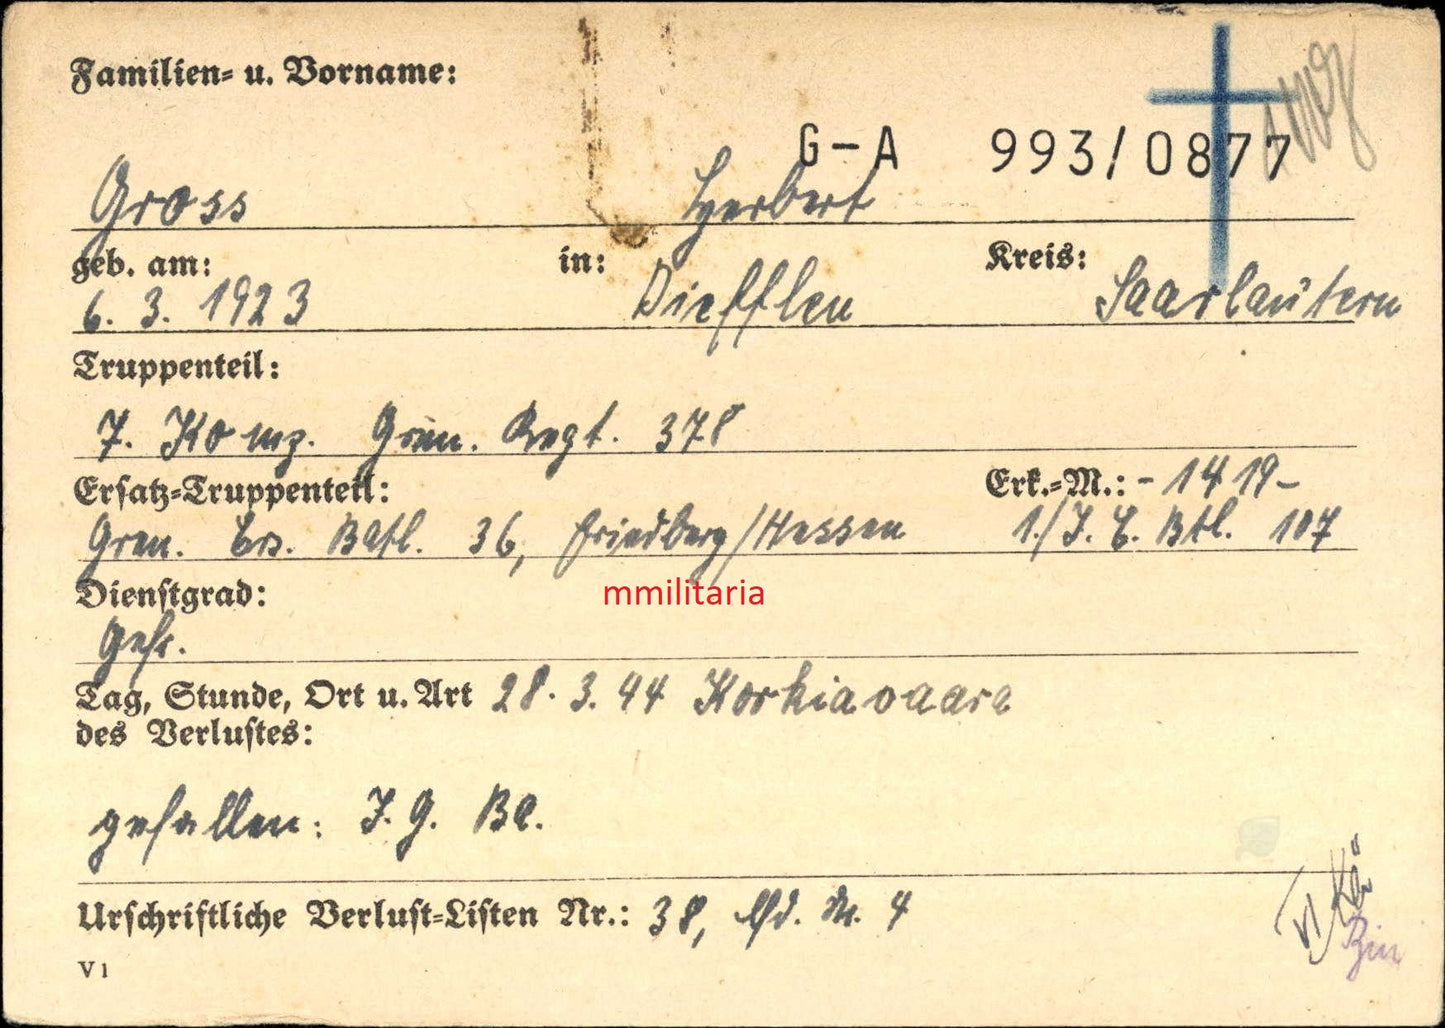 Familien- u. Vorname:
G-A 993/0877
Gross Herbert
geb. am: in: Kreis:
6. 3. 1923 Diefflen Saarlautern
Truppenteil:
7. Komp. Gren. Regt. 378
Ersatz-Truppenteil: Erk.-M.: - 1419-
Gren. Ers. Batl. 36, Friedberg/Hessen 1./J. E. Btl. 107
Dienstgrad:
mmilitaria
Gefr.
Tag, Stunde, Ort u. Art 28. 3. 44 Korkiavaara
des Verlustes:
gefallen: J. G. Be.
Urschriftliche Verlust-Listen Nr.: 38, lfd. Nr. 4
V 1